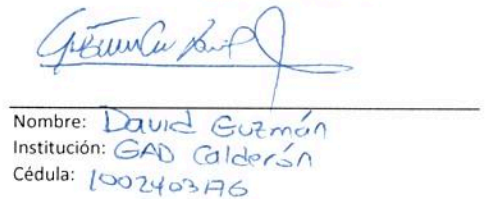 Nombre: David Guzmán
Institución: GAD Calderón
Cédula: 1002403176